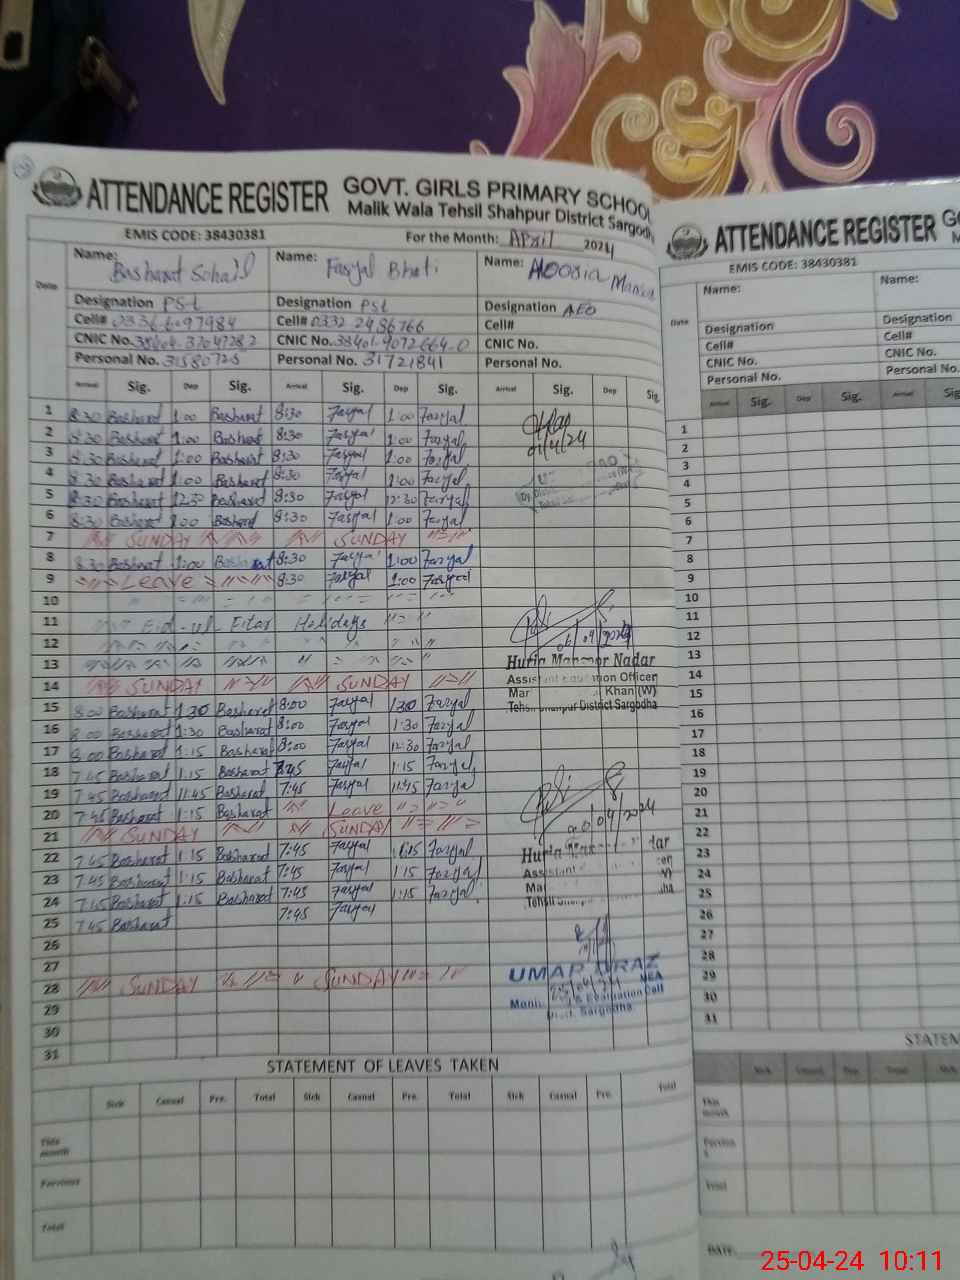 ATTENDANCE REGISTER GOVT. GIRLS PRIMARY SCHOOL
Malik Wala Tehsil Shahpur District Sargodh
EMIS CODE: 38430381 For the Month: April 2024
Date Name: Basharat Sohail Name: Faryal Bhati Name:
Designation PST Designation PST Designation AEO
Cell# Cell# 0332 2486766 Cell#
CNIC No. CNIC No. CNIC No.
Personal No. Personal No. 31721841 Personal No.
Arrival Sig. Dep Sig. Arrival Sig. Dep Sig. Arrival Sig. Dep Sig.
1 8:30 Basharat 1:00 Basharat 8:30 Faryal 1:00 Faryal
2 8:30 Basharat 1:00 Basharat 8:30 Faryal 1:00 Faryal 01/4/24
3 8:30 Basharat 1:00 Basharat 8:30 Faryal 1:00 Faryal
4 8:30 Basharat 1:00 Basharat 8:30 Faryal 1:00 Faryal
5 8:30 Basharat 12:30 Basharat 8:30 Faryal 12:30 Faryal
6 8:30 Basharat 1:00 Basharat 8:30 Faryal 1:00 Faryal
7 SUNDAY SUNDAY
8 8:30 Basharat 1:00 Basharat 8:30 Faryal 1:00 Faryal
9 Leave 8:30 Faryal 1:00 Faryal
10
11 Eid-ul Fitar Holidays
12
13 Assistant Education Officer
14 SUNDAY SUNDAY Khan (W)
15 8:00 Basharat 1:30 Basharat 8:00 Faryal 1:30 Faryal Tehsil Shahpur District Sargodha
16 8:00 Basharat 1:30 Basharat 8:00 Faryal 1:30 Faryal
17 8:00 Basharat 1:15 Basharat 8:00 Faryal 12:30 Faryal
18 7:45 Basharat 1:15 Basharat 7:45 Faryal 1:15 Faryal
19 7:45 Basharat 11:45 Basharat 7:45 Faryal 11:45 Faryal
20 7:45 Basharat 1:15 Basharat Leave 20/04/2024
21 SUNDAY SUNDAY
22 7:45 Basharat 1:15 Basharat 7:45 Faryal 1:15 Faryal
23 7:45 Basharat 1:15 Basharat 7:45 Faryal 1:15 Faryal
24 7:45 Basharat 1:15 Basharat 7:45 Faryal 1:15 Faryal
25 7:45 Basharat 7:45 Faryal
26
27
28 SUNDAY SUNDAY UMAR MEA
29 25/04/24 & Evaluation Cell
30 Sargodha
31
STATEMENT OF LEAVES TAKEN
Sick Casual Pre. Total Sick Casual Pre. Total Sick Casual Pre. Total
This month
Previous
Total
ATTENDANCE REGISTER
EMIS CODE: 38430381
Date Name: Name:
Designation Designation
Cell# Cell#
CNIC No. CNIC No.
Personal No. Personal No.
Arrival Sig. Dep Sig. Arrival
1
2
3
4
5
6
7
8
9
10
11
12
13
14
15
16
17
18
19
20
21
22
23
24
25
26
27
28
29
30
31
STATEM
Sick Casual Pre. Total Sick
This month
Previous
Total
DATE:
25-04-24 10:11